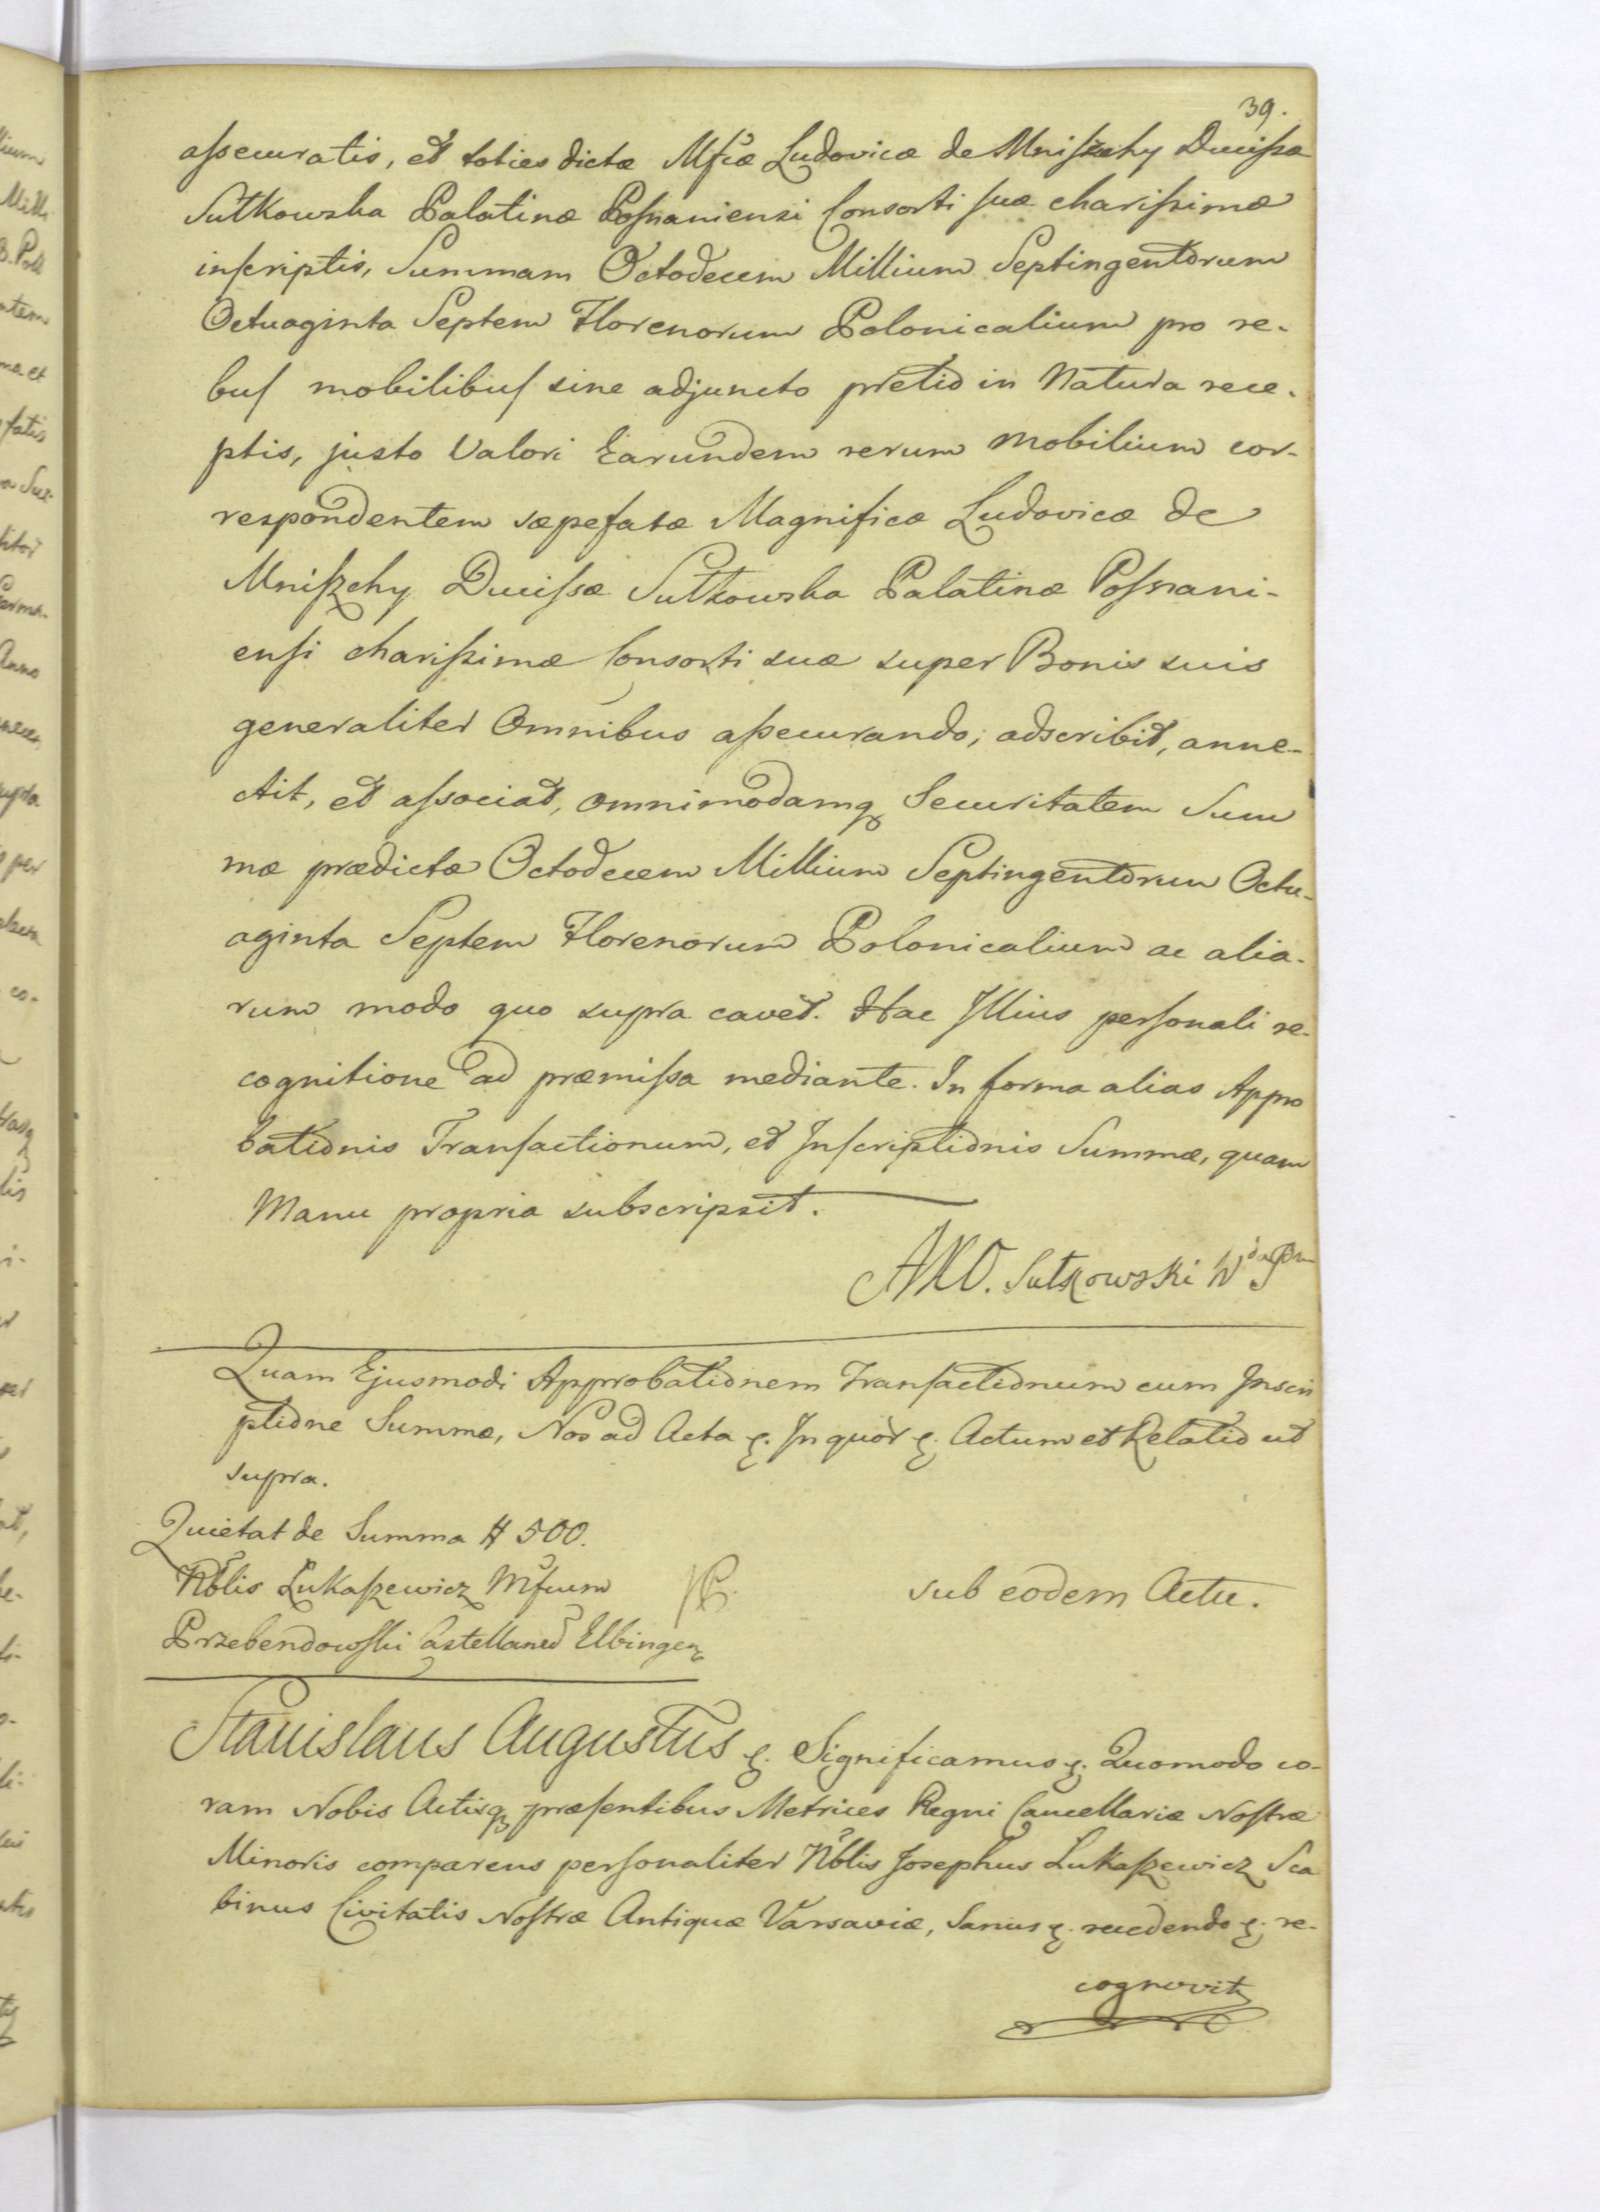 39.
assecuratis, et toties dictæ Mfcæ Ludovicæ de Mniszchy Ducissæ
Sułkowska Palatinæ Posnaniensi Consorti suæ charissimæ
inscriptis, Summam Octodecem Millium Septingentorum
Octuaginta Septem Florenorum Polonicalium pro re-
bus mobilibus sine adjuncto pretio in Natura rece-
ptis, justo Valori Earundem rerum mobilium cor-
respondentem sæpefatæ Magnificæ Ludovicæ de
Mniszchy Ducissæ Sułkowska Palatinæ Posnani-
ensi charissimæ Consorti suæ super Bonis suis
generaliter Omnibus assecurando, adscribit, anne-
ctit, et associat, omnimodamq Securitatem Sum
mæ prædictæ Octodecem Millium Septingentorum Octu-
aginta Septem Florenorum Polonicalium ac alia-
rum modo quo supra cavet. Hac Illius personali re-
cognitione ad præmissa mediante. In forma alias Appro
bationis Transactionum, et Inscriptionis Summæ, quam
Manu propria subscripsit.
Sułkowski
Quam Ejusmodi Approbationem Transactionum cum Inscri
ptione Summæ, Nos ad Acta &. In quor &. Actum et Relatio ut
supra.
Quietat de Summa # 500.
Nblis Łukaszewicz Mfcum
Przebendowski Castellaneum Elbingen
sub eodem Actu.
Stanislaus Augustus &. Significamus &. Quomodo co-
ram Nobis Actisq præsentibus Metrices Regni Cancellariæ Nostræ
Minoris comparens personaliter Nblis Josephus Łukaszewicz Sca
binus Civitatis Nostræ Antiquæ Varsaviæ, Sanus &. recedendo &. re-
cognovit